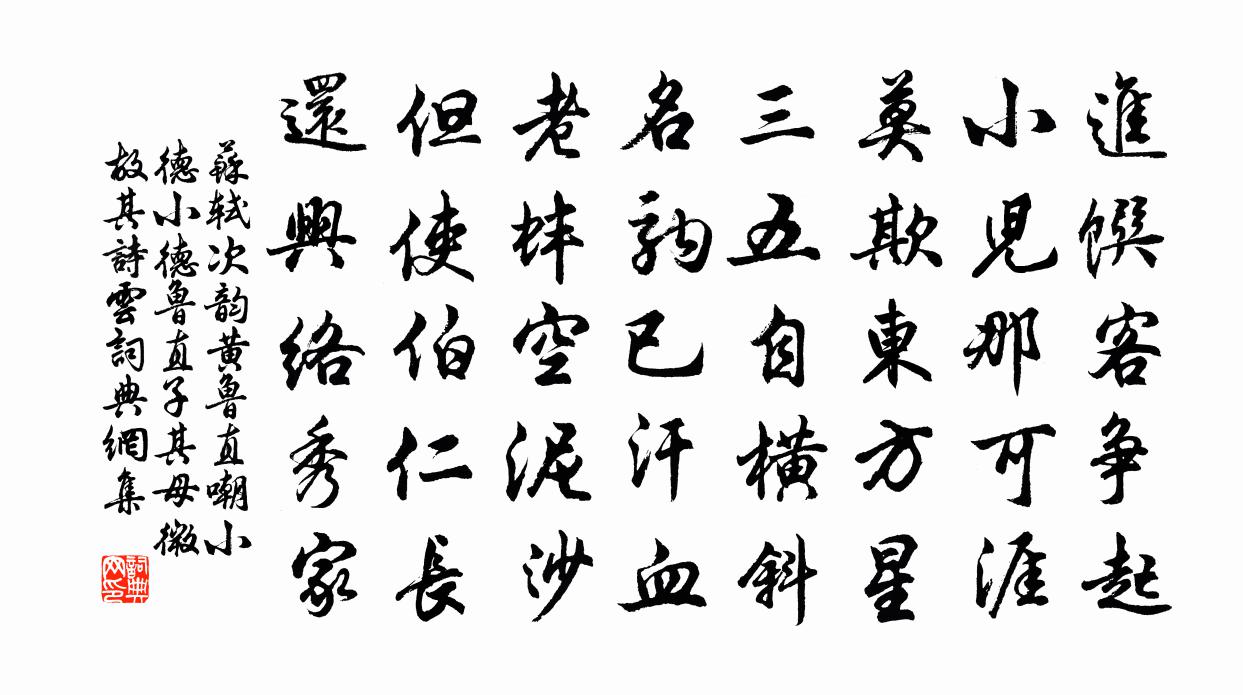 進饌客争起
小兒那可涯
莫欺東方星
三五自横斜
名駒已汗血
老蚌空泥沙
但使伯仁長
還興絡秀家
蘇軾次韵黄魯直嘲小
德小德魯直子其母微
故其詩雲詞典網集
詞典
网印